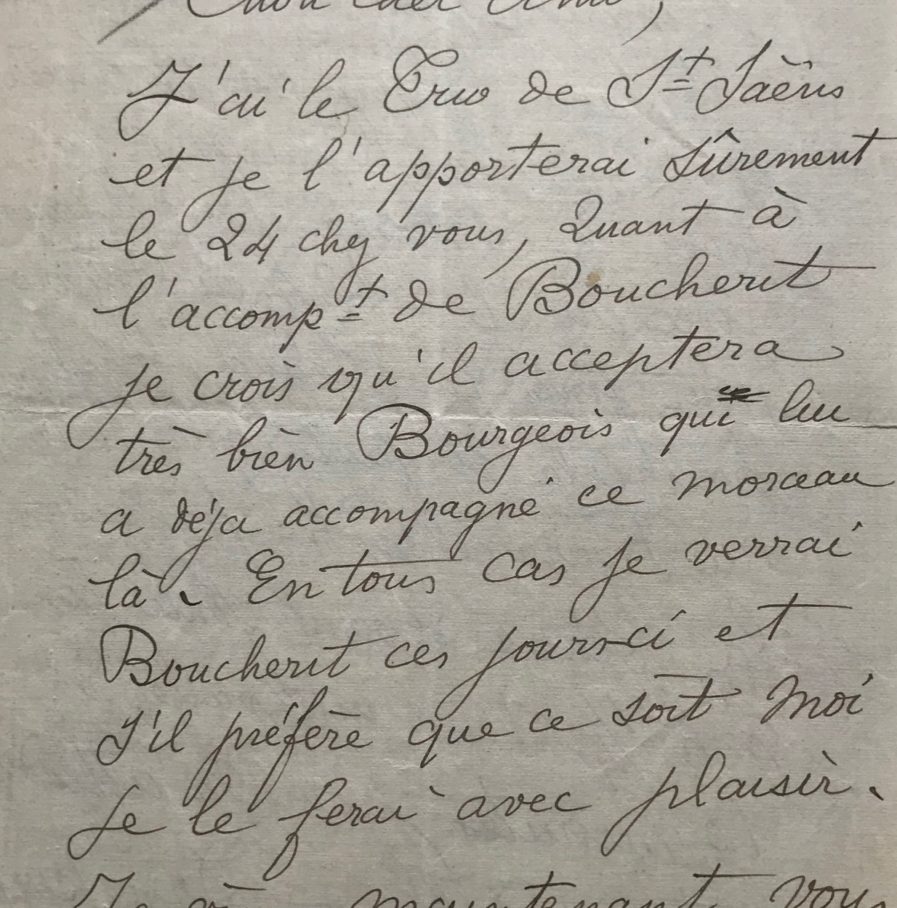 Mon cher Ami,
J'ai le Trio de St Saëns
et je l'apporterai sûrement
le 24 chez vous, Quant à
l'accompt de Boucherit
je crois qu'il acceptera
très bien Bourgeois qui lui
a déja accompagné ce morceau
là. En tous cas je verrai
Boucherit ces jours-ci et
s'il préfère que ce soit moi
je le ferai avec plaisir.
maintenant vous